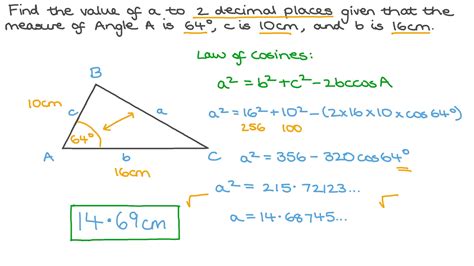 Find the value of a to 2 decimal places given that the
measure of Angle A is 64°, c is 10cm, and b is 16cm.
Law of cosines:
a² = b² + c² - 2bccosA
a² = 16² + 10² - (2x16x10xcos64°)
256 100
a² = 356 - 320cos64°
a² = 215.72123...
√ √
a = 14.68745...
14.69cm
B
10cm
c
a
64°
A
b
C
16cm